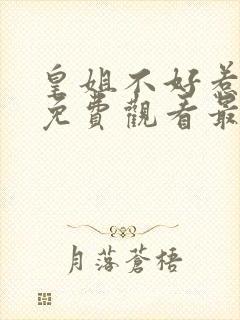 皇姐不好惹
免費觀看最
月落蒼梧